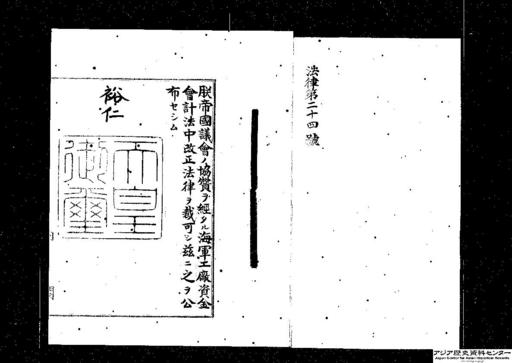 法律第二十四號
朕帝國議會ノ協贊ヲ經タル海軍工廠資金
會計法中改正法律ヲ裁可シ茲ニ之ヲ公
布セシム
裕仁
天皇御璽
アジア歴史資料センター
Japan Center for Asian Historical Records